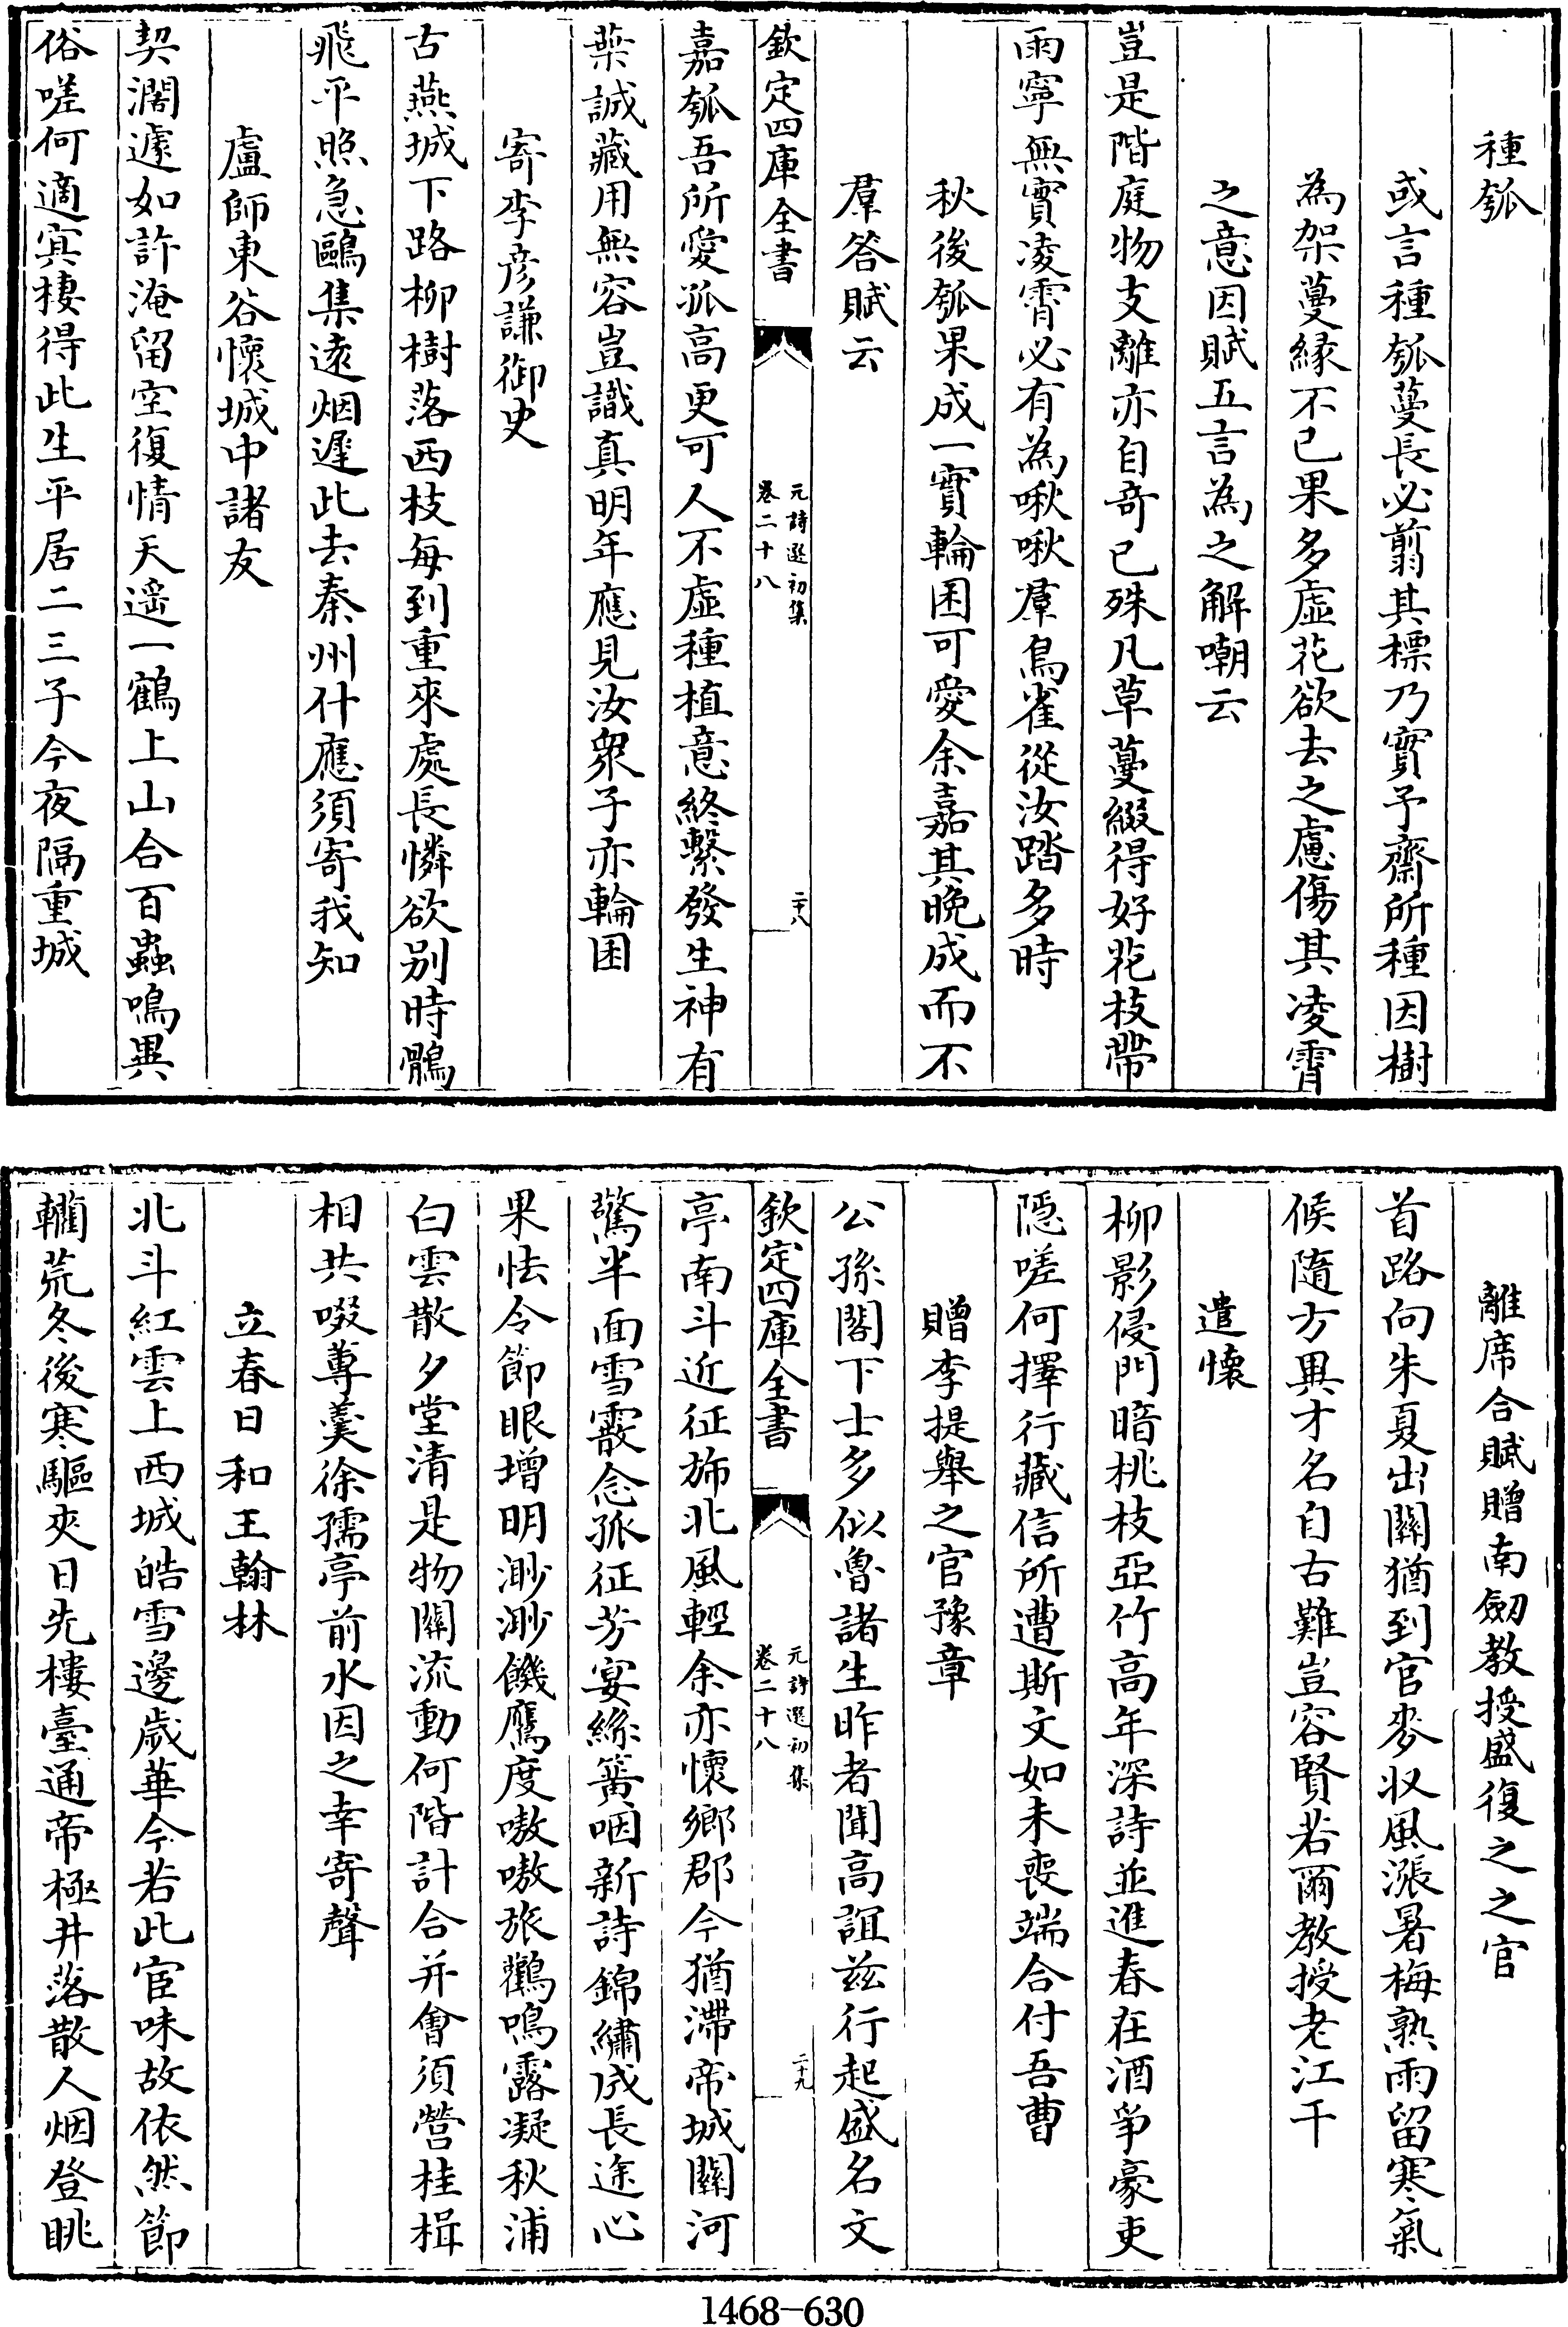 種瓠
或言種瓠蔓長必翦其標乃實予齋所種因樹
為架蔓緣不已果多虛花欲去之慮傷其凌霄
之意因賦五言為之解嘲云
豈是階庭物支離亦自竒已殊凡草蔓綴得好花枝帶
雨寧無實凌霄必有為啾啾羣鳥雀從汝踏多時
秋後瓠果成一實輪囷可愛余嘉其晚成而不
羣答賦云
欽定四庫全書
元詩選初集
卷二十八
二十八
嘉瓠吾所愛孤高更可人不虛種植意終繫發生神有
葉誠藏用無容豈識真明年應見汝衆子亦輪囷
寄李彥謙御史
古燕城下路柳樹落西枝每到重來處長憐欲别時鶻
飛平照急鷗集逺烟遲此去秦州什應須寄我知
盧師東谷懷城中諸友
契濶遽如許淹留空復情天遥一鶴上山合百蟲鳴異
俗嗟何適冥棲得此生平居二三子今夜隔重城
離席合賦贈南劒教授盛復之之官
首路向朱夏出關猶到官麥収風漲暑梅熟雨留寒氣
候隨方異才名自古難豈容賢若爾教授老江干
遣懷
柳影侵門暗桃枝亞竹高年深詩並進春在酒爭豪吏
隠嗟何擇行藏信所遭斯文如未喪端合付吾曹
贈李提舉之官豫章
公孫閣下士多似魯諸生昨者聞高誼兹行起盛名文
欽定四庫全書
元詩選初集
卷二十八
二十九
亭南斗近征斾北風輕余亦懷鄉郡今猶滯帝城關河
驚半面雪霰念孤征芳宴絲簧咽新詩錦繡成長途心
果怯令節眼增明渺渺饑鷹度嗷嗷旅鸛鳴露凝秋浦
白雲散夕堂清是物關流動何階計合并會須營桂楫
相共啜蓴羹徐孺亭前水因之幸寄聲
立春日和王翰林
北斗紅雲上西城皓雪邊歲華今若此宦味故依然節
轥荒冬後寒驅夾日先樓臺通帝極井落散人烟登眺